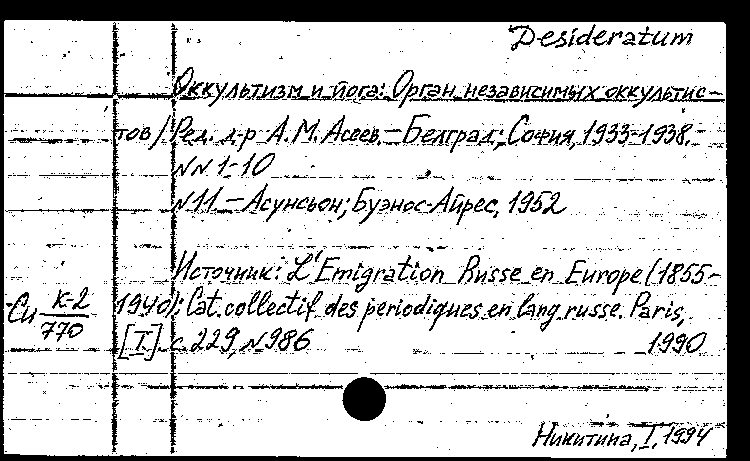 Desideratum
Оккультизм и йога: Орган независимых оккультис-
тов / Ред. д-р А.М. Асеев. – Белград; София, 1933-1938. -
NN 1-10
N 11 – Асунсьон; Буэнос-Айрес, 1952
Источник: L'Emigration Russe en Europe (1855-
Си К-2
770
1940); Cat. collectif des periodiques en lang. russe. Paris,
[I.] с. 229, N 986 1990
Никитина, I, 1994